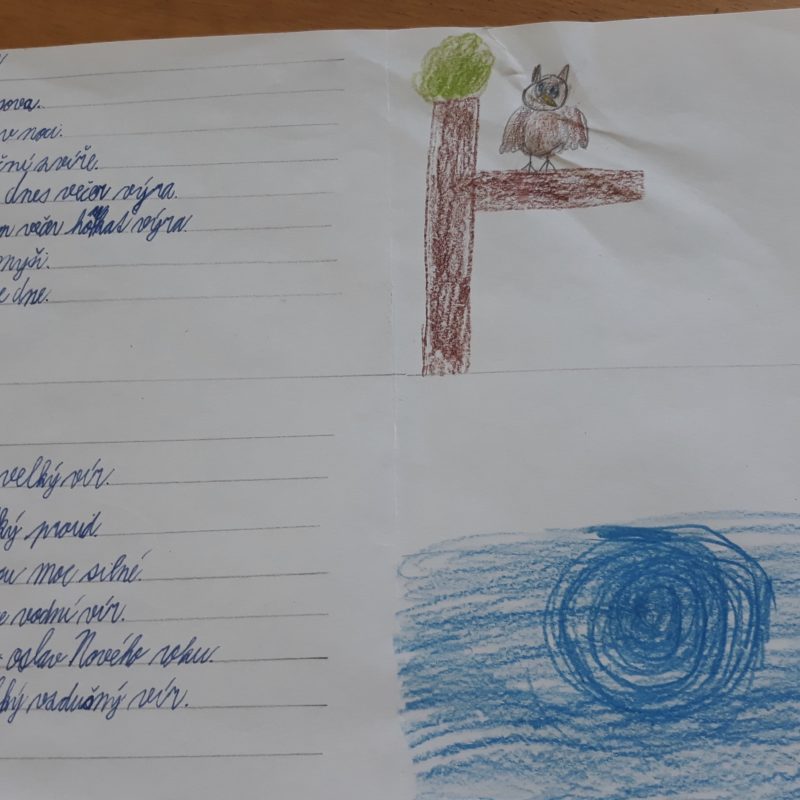 v noci.
zvíře.
dnes večer výra.
večer hôkat výra.
myši.
dne.
velký vír.
proud.
moc silné.
vodní vír.
oslav Nového roku.
vzdušný vír.